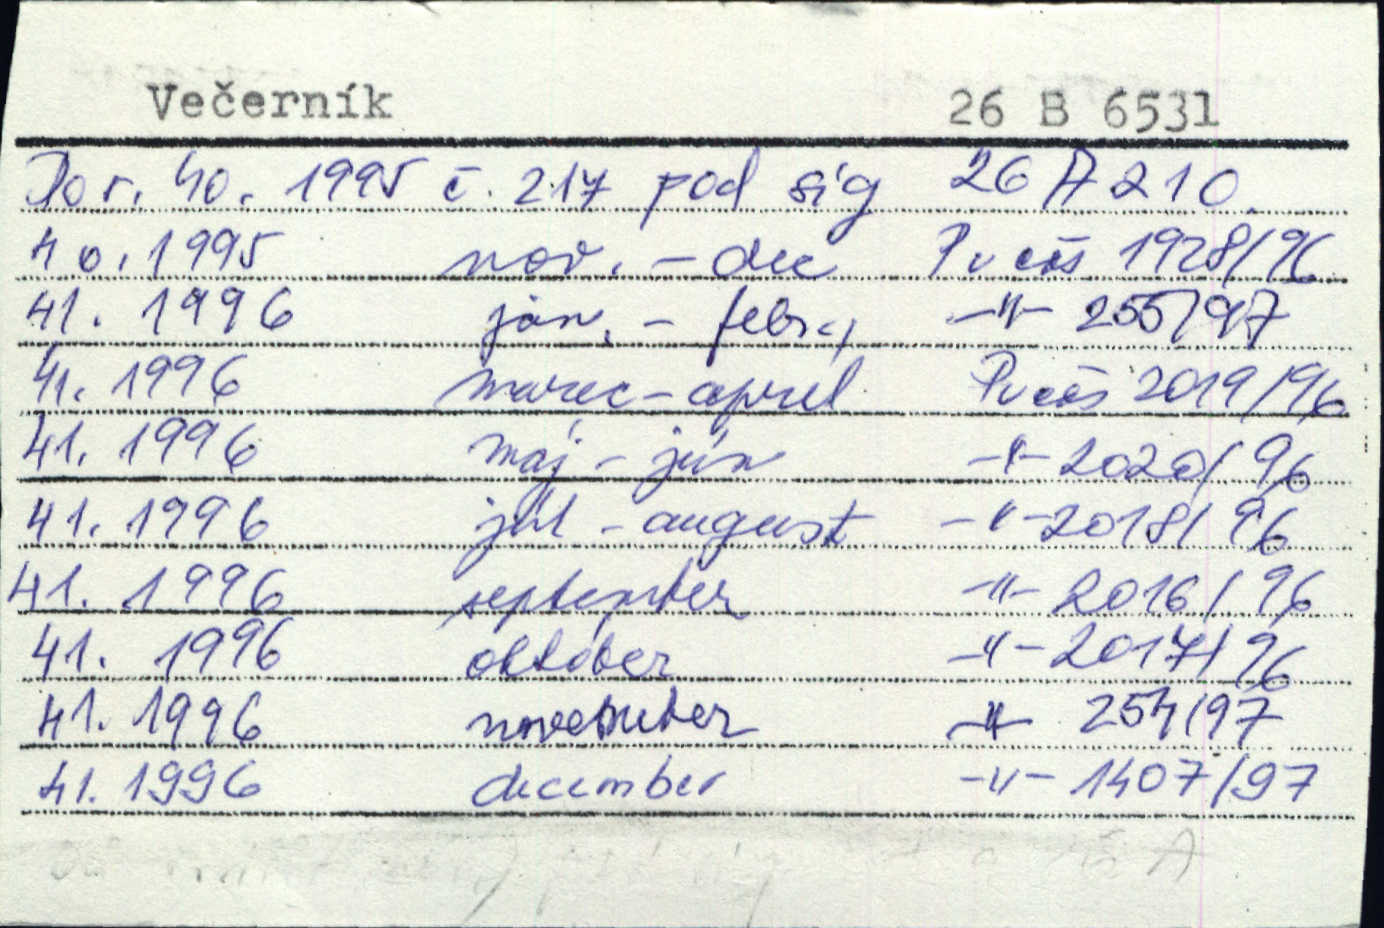 Večerník 26 B 6531
Do r. 40. 1995 č. 217 pod sig 26 A 210.
40. 1995 nov. - dec Pv čas 1928/96
41. 1996 jan. - febr., -"- 255/97
41. 1996 marec - apríl Pv čas 2019/96
41. 1996 máj - jún -"- 2020/96
41. 1996 júl - august -"- 2018/96
41. 1996 september -"- 2016/96
41. 1996 október -"- 2017/96
41. 1996 november -"- 254/97
41. 1996 december -"- 1407/97